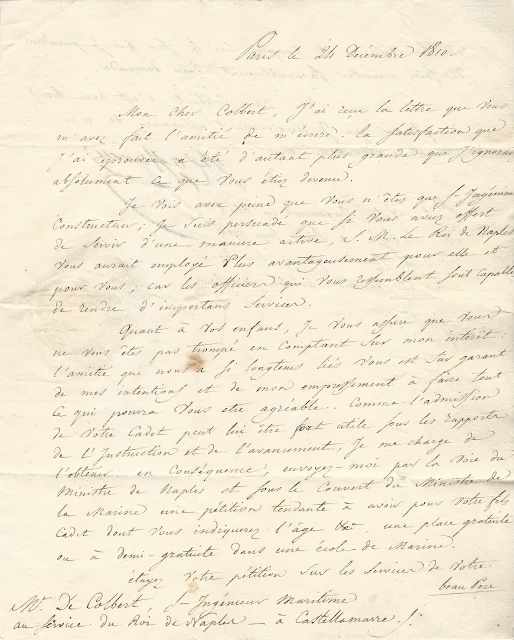 Paris le 24 Décembre 1810.
Mon cher Colbert, J'ai recu la lettre que vous
m'avez fait l'amitié de m'écrire. la Satisfaction que
J'ai éprouvée a été d'autant plus grande que J'ignorais
absolument ce que vous étiez devenu.
Je vois avec peine que vous n'êtes que S-Ingénieur
Constructeur; Je suis persuadé que si vous aviez offert
de Servir d'une maniere active, S. M. le Roi de Naples
vous aurait employé plus avantageusement pour elle et
pour vous; car les officiers qui vous ressemblent sont capables
de rendre d'importans Services.
Quant à vos enfans, Je vous assure que vous
ne vous êtes pas trompé en comptant sur mon intérêt.
l'amitié qui nous a si longtems liés vous est sur garant
de mes intentions et de mon empressement à faire tout
ce qui pourra vous etre agréable. Comme l'admission
de votre Cadet peut lui être fort utile sous les rapports
de l'Instruction et de l'avancement, Je me charge de
l'obtenir. en Conséquence, envoyez-moi par la voie du
Ministre de Naples et sous le Couvert du Ministre de
la Marine une pétition tendante à avoir pour votre fils
Cadet dont vous indiquerez l'age &c. une place gratuite
ou à demi-gratuite dans une école de Marine.
étayez votre pétition sur les Services de votre
beau Pere
Mr. De Colbert S-Ingénieur Maritime
au Service du Roi de Naples - à Castellamarre.